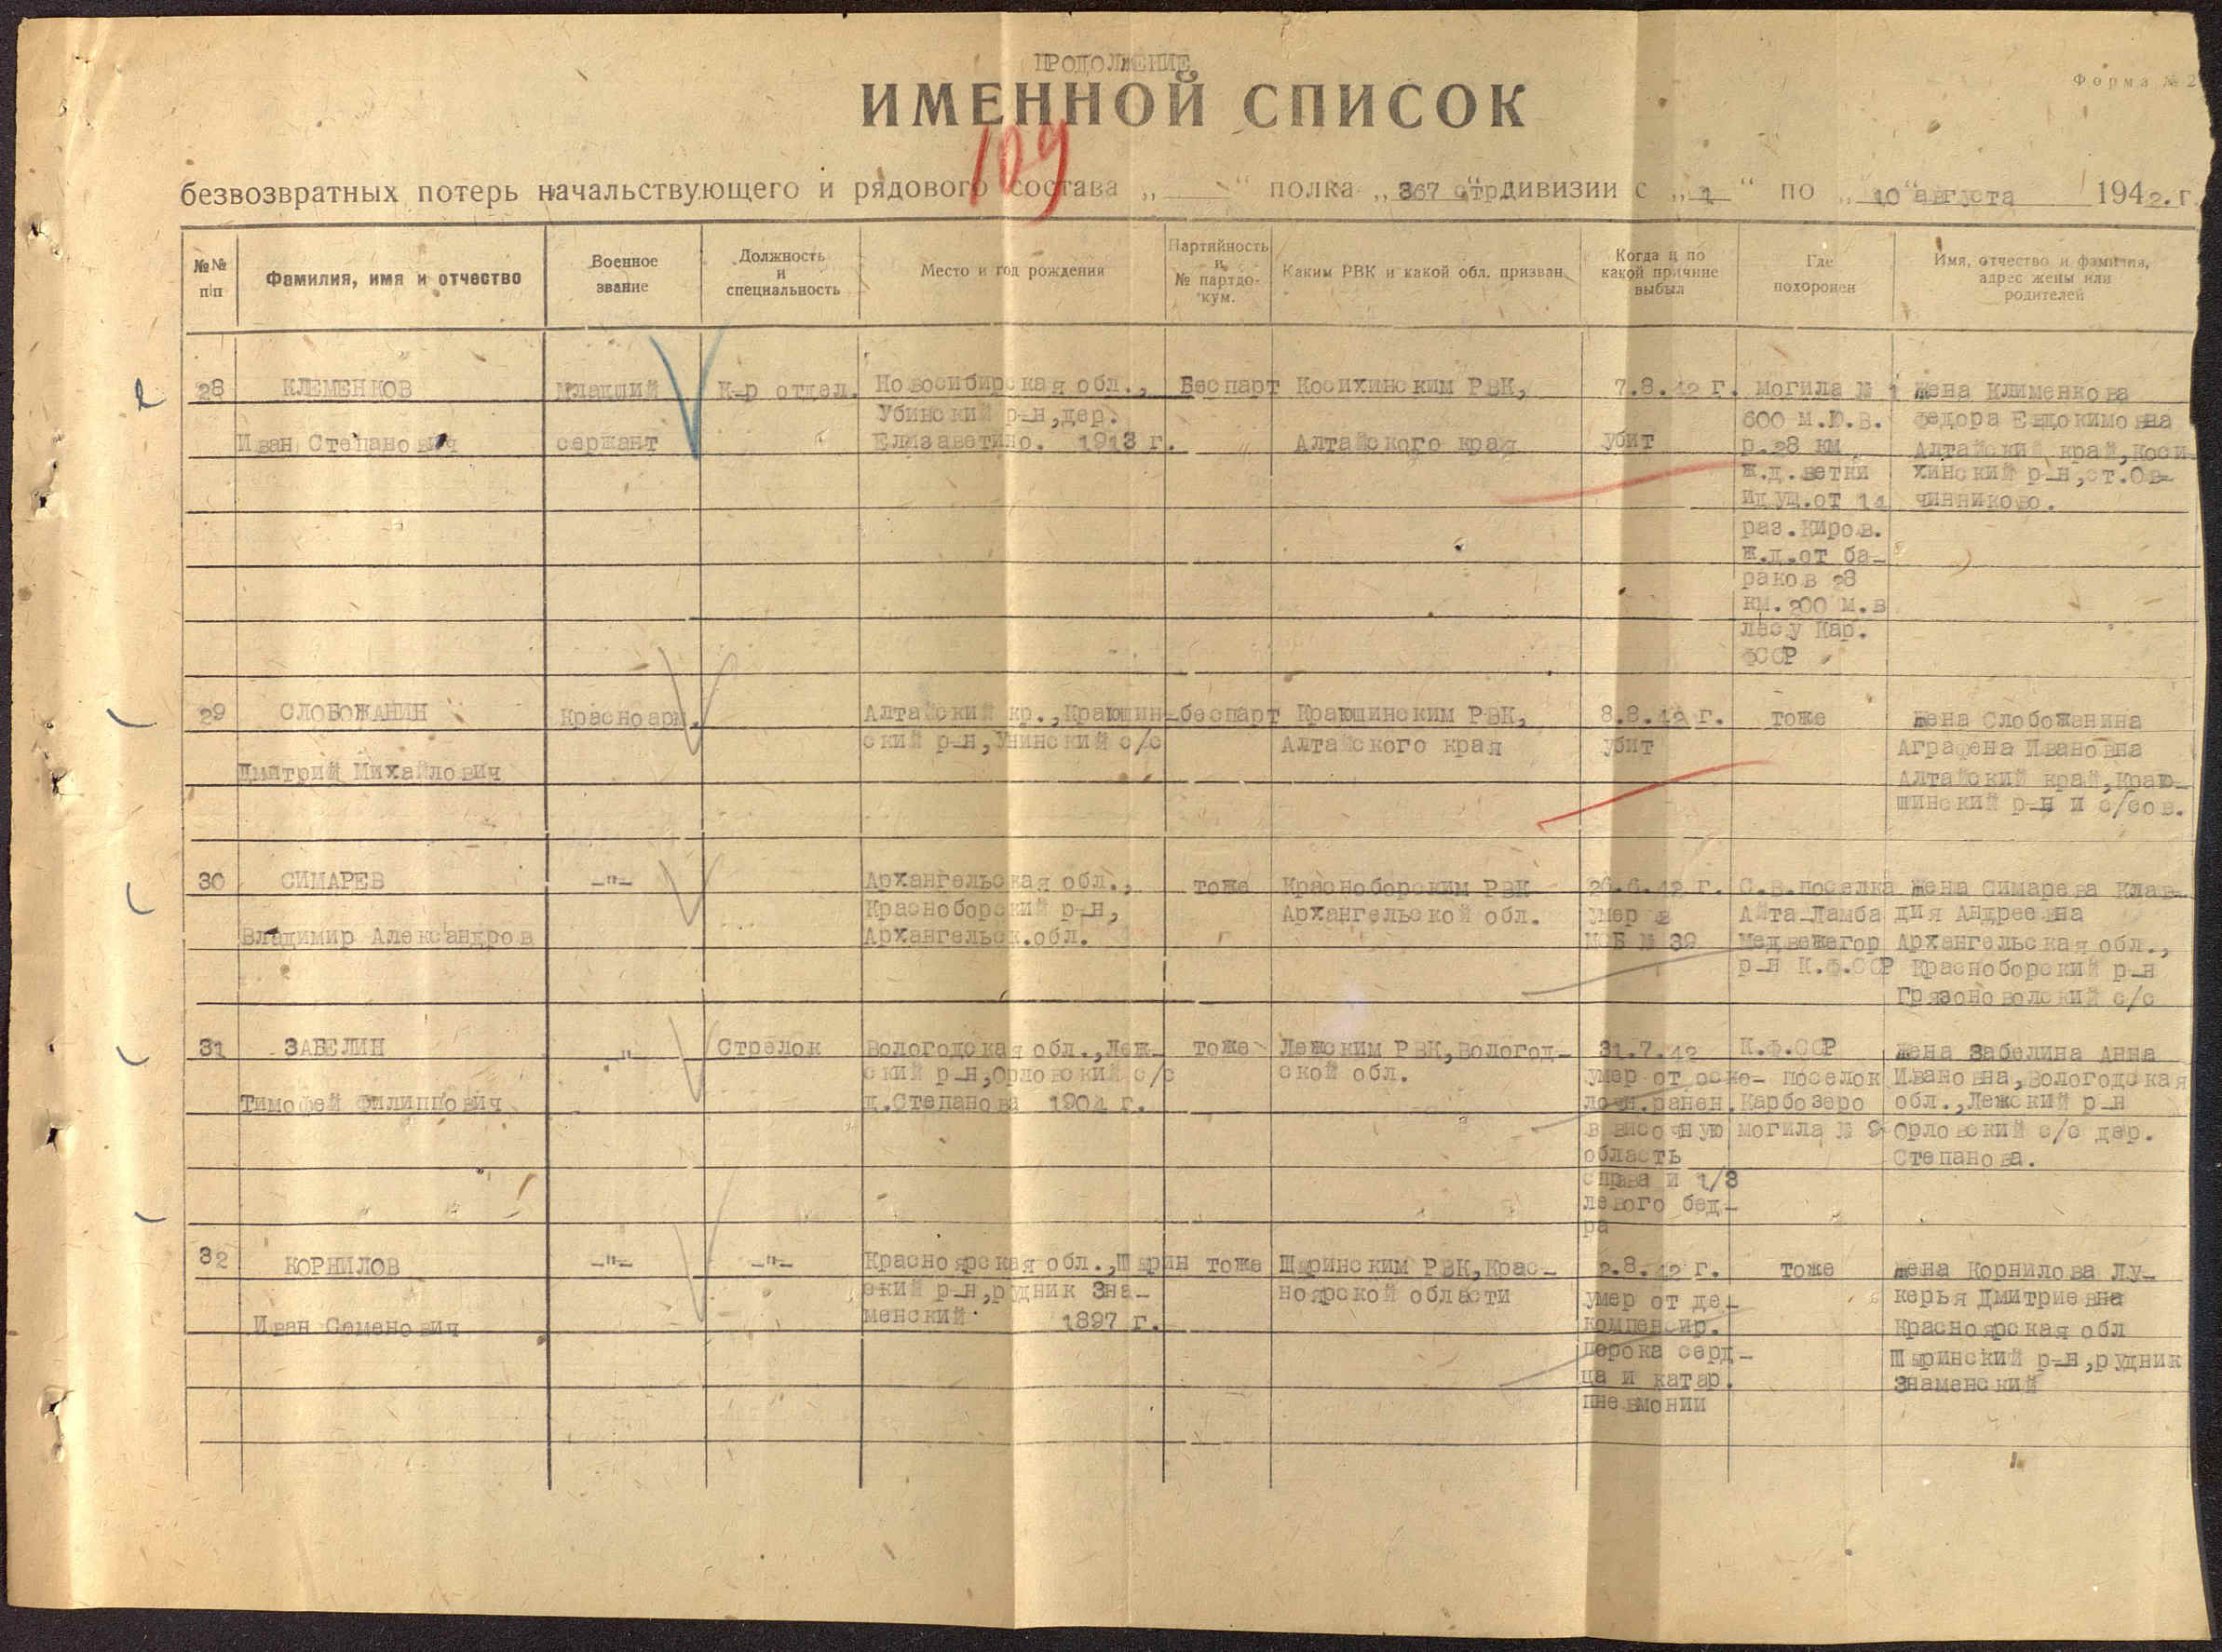 ПРОДОЛЖЕНИЕ
Форма № 2
ИМЕННОЙ СПИСОК
109
безвозвратных потерь начальствующего и рядового состава „ “ полка „ 367 стрдивизии с „ 1 “ по „ 10 “ августа 1942.г.
№№ п|п
Фамилия, имя и отчество
Военное звание
Должность и специальность
Место и год рождения
Партийность и № партдо-кум.
Каким РВК и какой обл. призван
Когда и по какой причине выбыл
Где похоронен
Имя, отчество и фамилия, адрес жены или родителей
28
КЛЕМЕНКОВ
Иван Степанович
младший
сержант
К-р отдел.
Новосибирская обл.,
Убинский р-н,дер.
Елизаветино. 1913 г.
Беспарт
Косихинским РВК,
Алтайского края
7.8.42 г.
убит
могила № 1
600 м.Ю.В.
р.28 км
ж.д.ветки
идущ.от 14
раз.Киров.
ж.д.от ба-
раков 28
км.200 м.в
лесу Кар.
ФССР
жена Клименкова
Федора Евдокимовна
Алтайский край,Коси-
хинский р-н,ст.Ов-
чинниково.
29
СЛОБОЖАНИН
Дмитрий Михайлович
Красноарм.
Алтайский кр.,Краюшин-
ский р-н,Унинский с/с
беспарт
Краюшинским РВК,
Алтайского края
8.8.42 г.
убит
тоже
жена Слобожанина
Аграфена Ивановна
Алтайский край,Краю-
шинский р-н и с/сов.
30
СИМАРЕВ
Владимир Александров
-"-
Архангельская обл.,
Красноборский р-н,
Архангельск.обл.
тоже
Красноборским РВК
Архангельской обл.
26.6.42 г.
умер в
МСБ № 39
С.в.поселка
Айта-Ламба
Медвежегор
р-н К.Ф.ССР
жена Симарева Клав-
дия Андреевна
Архангельская обл.,
Красноборский р-н
Грязоноволский с/с
31
ЗАБЕЛИН
Тимофей Филиппович
-"-
Стрелок
Вологодская обл.,Леж-
ский р-н,Орловский с/с
д.Степанова 1904 г.
тоже
Лежским РВК,Вологод-
ской обл.
31.7.42
умер от оско-
лочн.ранен.
в височную
область
справа и 1/3
левого бед-
ра
К.Ф.ССР
поселок
Карбозеро
могила № 9
жена Забелина Анна
Ивановна,Вологодская
обл.,Лежский р-н
Орловский с/с дер.
Степанова.
32
КОРНИЛОВ
Иван Семенович
-"-
-"-
Красноярская обл.,Ширин
ский р-н,рудник Зна-
менский 1897 г.
тоже
Ширинским РВК,Крас-
ноярской области
2.8.42 г.
умер от де-
компенсир.
порока серд-
ца и катар.
пневмонии
тоже
жена Корнилова Лу-
керья Дмитриевна
Красноярская обл
Ширинский р-н,рудник
Знаменский